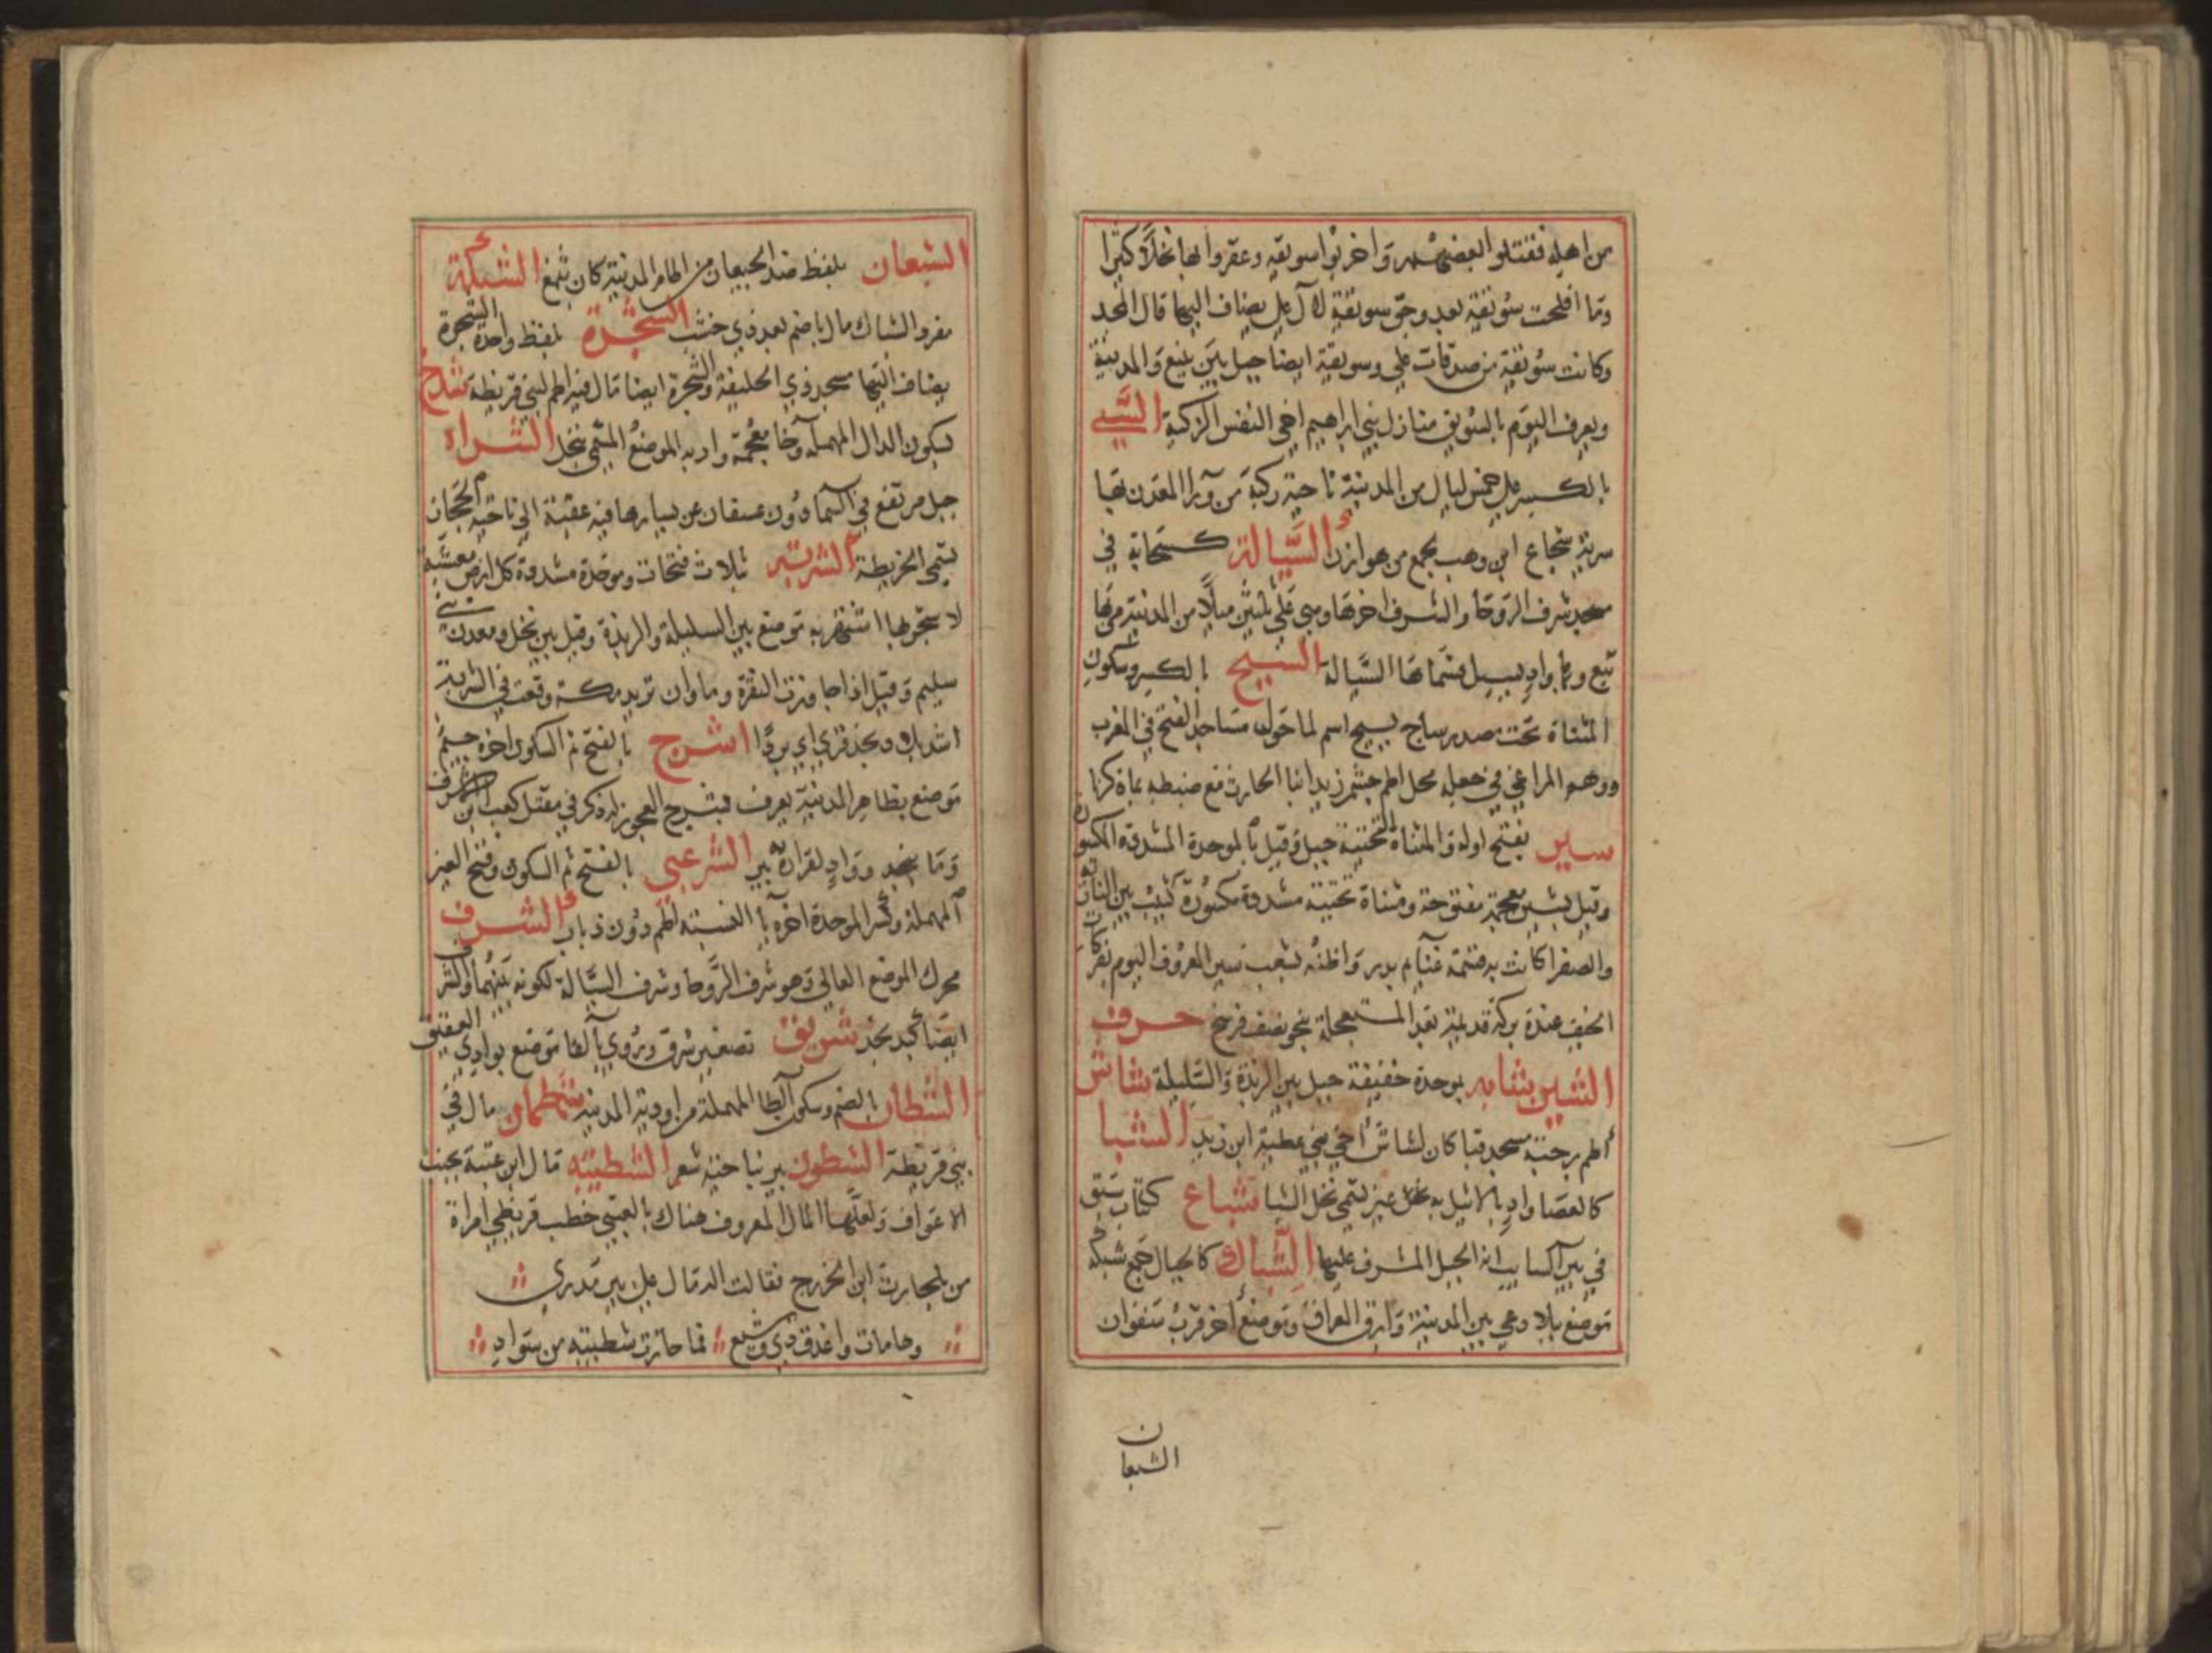 من اهله فقتلوا بعضهم واخربوا سويقه وعقروا بها نخلا كثيرا
وما افلحت سويقة بعد وجو سويقة لال علي يضاف اليها قال المجد
وكانت سويقة من صدقات علي وسويقة ايضا جبل بين ينبع والمدينة
ويعرف اليوم بالسويق منازل بني ابراهيم اخى النفس الزكية السي
بالكسر على خمس ليال من المدينة ناحية ركبة من ورا المعدن بها
سرية شجاع ابن وهب بجمع من هوازن السيالة كسحابة في
مسجد شرف الروحا والشرف اخرها وهي على ثلثين ميلا من المدينة مر بها
تبع وبها واد يسيل فسماها السيالة السيح بالكسر وسكون
المثناة تحت مصدر ساح يسيح اسم لما حول مساجد الفتح في المغرب
ووهم المراغي في جعله محل اطم جشم وزيد ابنا الحارث مع ضبطه بما ذكرنا
سير بفتح اوله والمثناة التحتية جبل وقيل بالموحدة المشددة المكسورة
وقيل بشين معجمة مفتوحة ومثناة تحتية مشددة مكسورة كثيب بين النازية
والصفرا كانت به قسمة غنايم بدر واظنه شعب سير المعروف اليوم بفركات
الخيف عنده بركة قديمة بعد المستعجلة بنحو نصف فرسخ حرف
الشين شابه بموحدة خفيفة جبل بين الربذة والسليلة شاش
اطم برحبة مسجد قبا كان لشاش اخي بني عطية ابن زيد الشبا
كالعصا واد بالاثيل به نخل عين يسمى نخل الشبا شباع ككتاب سبق
في بير السايب انه الجبل المشرف عليها الشباك كالجبال جمع شبكه
موضع ببلاد غني بين المدينة وابرق العراف وموضع اخر قرب سفوان
الشبعان
الشبعان بلفظ ضد الجيعان من اطام المدينة كان بثمغ الشبكة
مفرد الشباك مال باضم بعد ذي خشب الشجرة بلفظ واحدة الشجرة
يضاف اليها مسجد ذي الحليفة والشجرة ايضا مال فيه اطم لبني قريظة شدخ
بسكون الدال المهملة وخا معجمة واد به الموضع المسمى بنخل الشراه
جبل مرتفع في السما دون عسفان عن يسارها فيه عقبة الي ناحية الحجاز
تسمى الخريطة الشربة بثلاث فتحات وموحدة مشددة كل ارض معشبة
لا شجر بها اشتهر به موضع بين السليلة والربذة وقيل بين نخل ومعدن بني
سليم وقيل اذا جاوزت النقرة وماوان تريد مكة وقعت في الشربة
اشد بلاد نجد قرى اي بردا شرج بالفتح ثم السكون اخره جيم
موضع بظاهر المدينة يعرف بشرج العجوز له ذكر في مقتل كعب ابن الاشرف
وما بنجد وواد لفزارة به بير الشرعبي بالفتح ثم السكون وفتح العين
المهملة وكسر الموحدة اخره يا النسبة اطم دون ذباب الشرف
محرك الموضع العالي وهو شرف الروحا وشرف السيالة لكونه بينهما والشرف
ايضا كبد نجد شريق تصغير شرق ويروي بالفا موضع بوادي العقيق
الشطان بالضم وسكون الطا المهملة من اودية المدينة شطمان مال في
بني قريظة الشطون بير بناحية شعر الشطبيه قال ابن عتبة بجنب
الاعواف ولعلها المال المعروف هناك بالعتبي خطب قريظي امراة
من بلحارث ابن الخزرج فقالت اله مال على بير مدرى
وحامات واعذق ذي وشيع فما حازت شطيبته من سواد